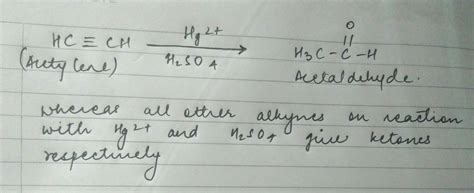 O
HC ≡ CH Hg2+ H3C - C - H
(Acetylene) H2SO4 Acetaldehyde.
whereas all other alkynes on reaction
with Hg2+ and H2SO4 give ketones
respectively